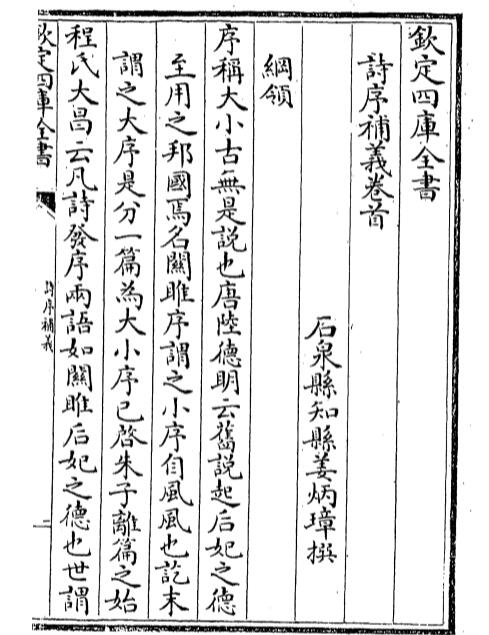 欽定四庫全書
詩序補義卷首
石泉縣知縣姜炳璋撰
綱領
序稱大小古無是説也唐陸德明云舊説起后妃之德
至用之邦國焉名關雎序謂之小序自風風也訖末
謂之大序是分一篇為大小序已啓朱子離篇之始
程氏大昌云凡詩發序兩語如關雎后妃之德也世謂
欽定四庫全書
詩序補義
二